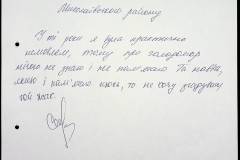 Миколаївського району
У ті роки я була практично
немовлям, тому про голодомор
нічого не знаю і не пам'ятаю. Та навіть,
якщо і пам'ятала щось, то не хочу згадувати
той жах.